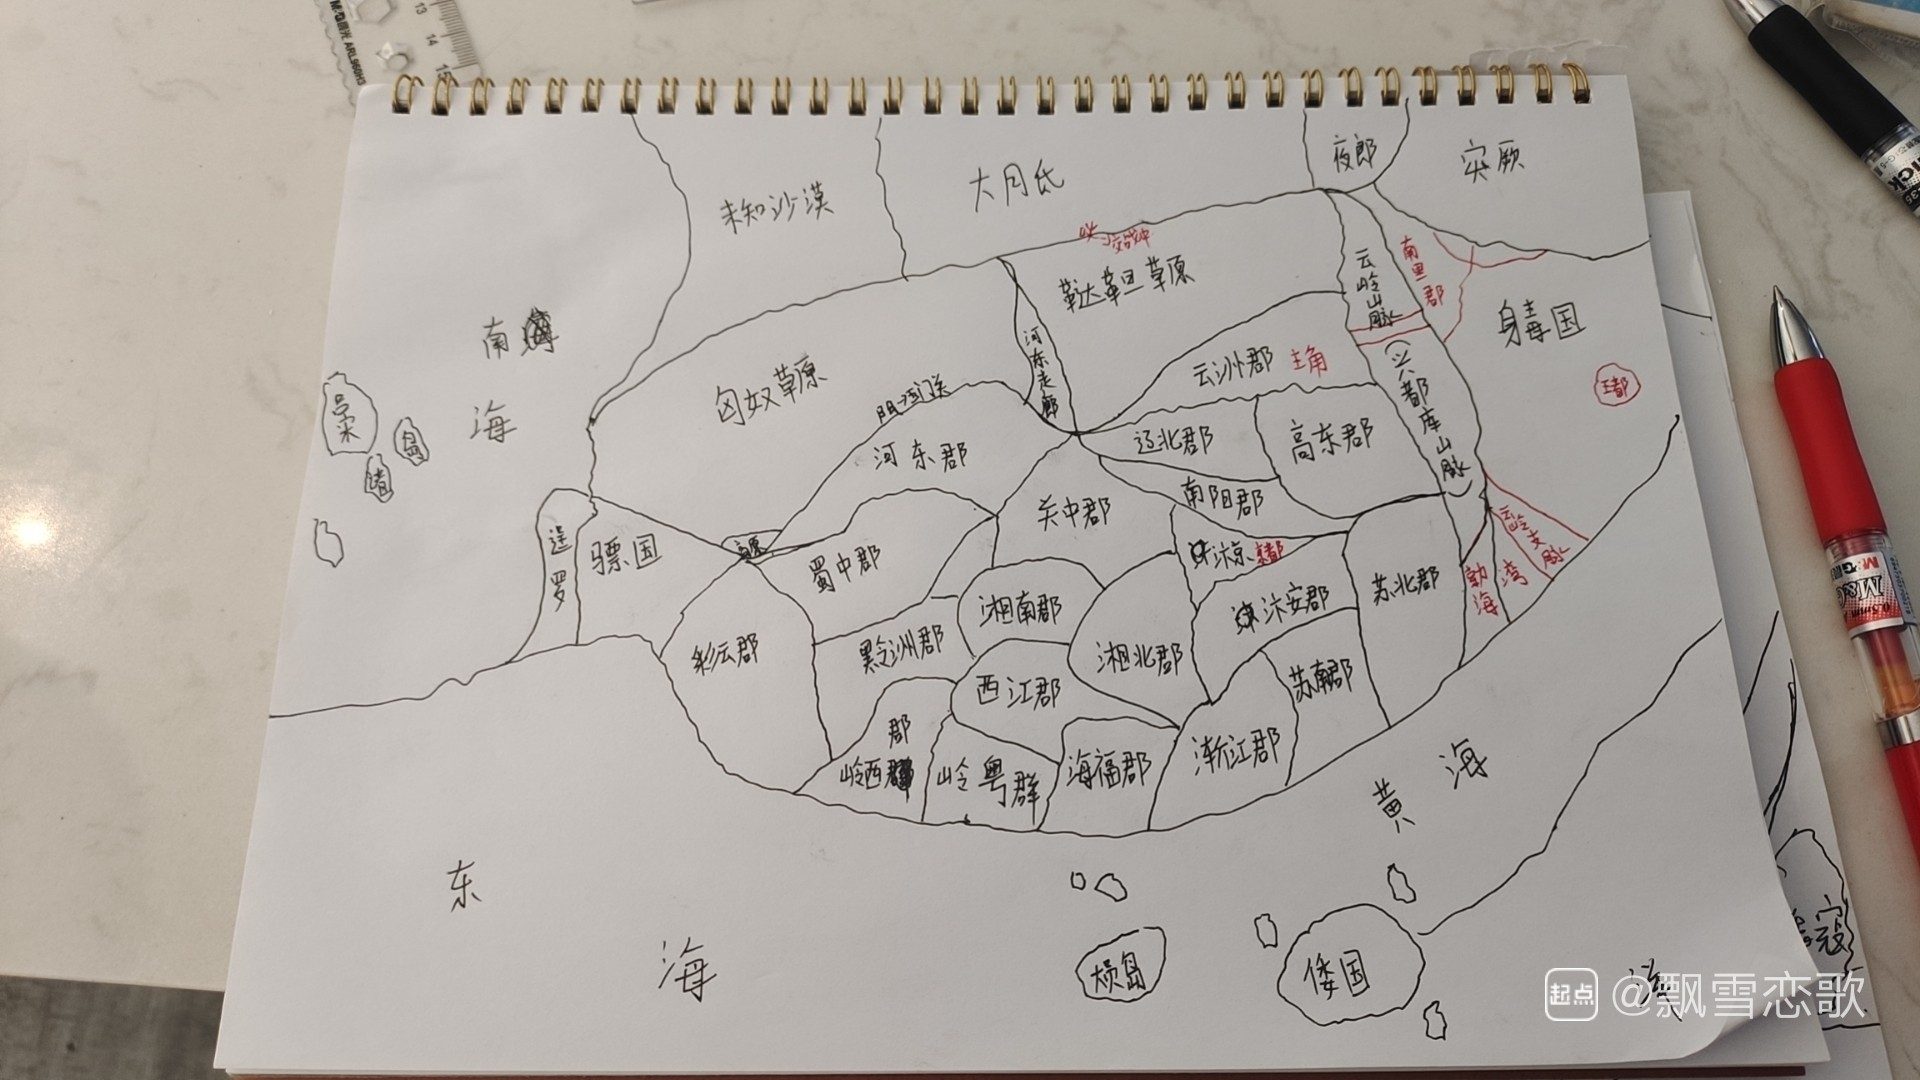 13
14
15
M&G晨光 ARL960H3
夜郎
突厥
未知沙漠
大月氏
鞑靼草原
云岭山脉
南里郡
身毒国
王都
南海
河东走廊
云洲郡 主角
(兴都库山脉)
匈奴草原
河东郡
辽北郡
高东郡
南阳郡
关中郡
暹罗
骠国
蜀中郡
汴京
京都
云岭支脉
勃海湾
苏北郡
湘南郡
汴安郡
彩云郡
黔洲郡
湘北郡
西江郡
苏南郡
岭西郡
岭粤群
海福郡
浙江郡
黄海
东海
倭国
M&G
0.5mm
寇
起点 @飘雪恋歌